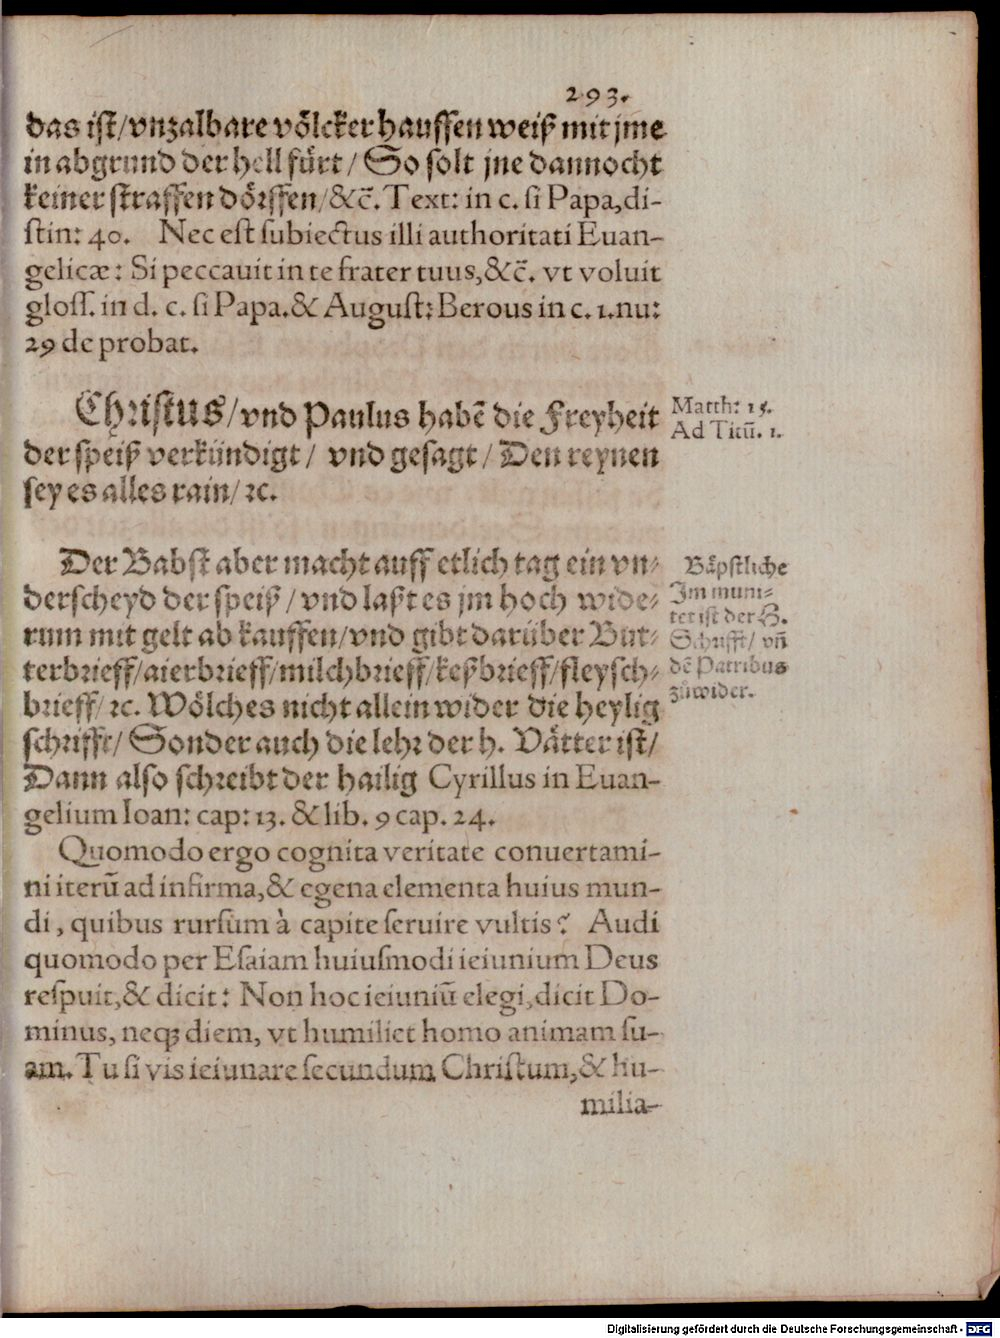 293.
das ist/vnzalbare võlcker hauffen weiß mit jme
in abgrund der hell fürt/ So solt jne dannocht
keiner straffen dörffen/&c̃. Text: in c. si Papa,di-
stin: 40. Nec est subiectus illi authoritati Euan-
gelicæ: Si peccauit in te frater tuus,&c̃. vt voluit
gloss. in d. c. si Papa.& August: Berous in c. 1. nu:
29 de probat.
Christus/vnd Paulus habẽ die Freyheit
der speiß verkündigt/ vnd gesagt/ Den reynen
sey es alles rain/ ꝛc.
Matth: 15.
Ad Titũ. 1.
Der Babst aber macht auff etlich tag ein vn-
derscheyd der speiß/ vnd laßt es jm hoch wide-
rum mit gelt ab kauffen/vnd gibt darüber But-
terbrieff/aierbrieff/milchbrieff/keßbrieff/fleysch-
brieff/ ꝛc. Wölches nicht allein wider die heylig
schrifft/ Sonder auch die lehr der h. Vätter ist/
Dann also schreibt der hailig Cyrillus in Euan-
gelium Ioan: cap: 13. & lib. 9 cap. 24.
Bäpstliche
Im muni-
tet ist der H.
Schrifft/ vñ
dẽ Patribus
zůwider.
Quomodo ergo cognita veritate conuertami-
ni iterũ ad infirma,& egena elementa huius mun-
di, quibus rursum à capite seruire vultis? Audi
quomodo per Esaiam huiusmodi ieiunium Deus
respuit,& dicit: Non hoc ieiuniũ elegi,dicit Do-
minus, neqꝫ diem, vt humiliet homo animam su-
am. Tu si vis ieiunare secundum Christum,& hu-
milia-
Digitalisierung gefördert durch die Deutsche Forschungsgemeinschaft - DFG